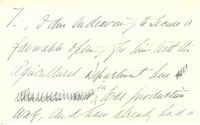 7., I am endeavoring to secure a
favorable opening for him with the
Agricultural Department here
in war production
work, and have already had a